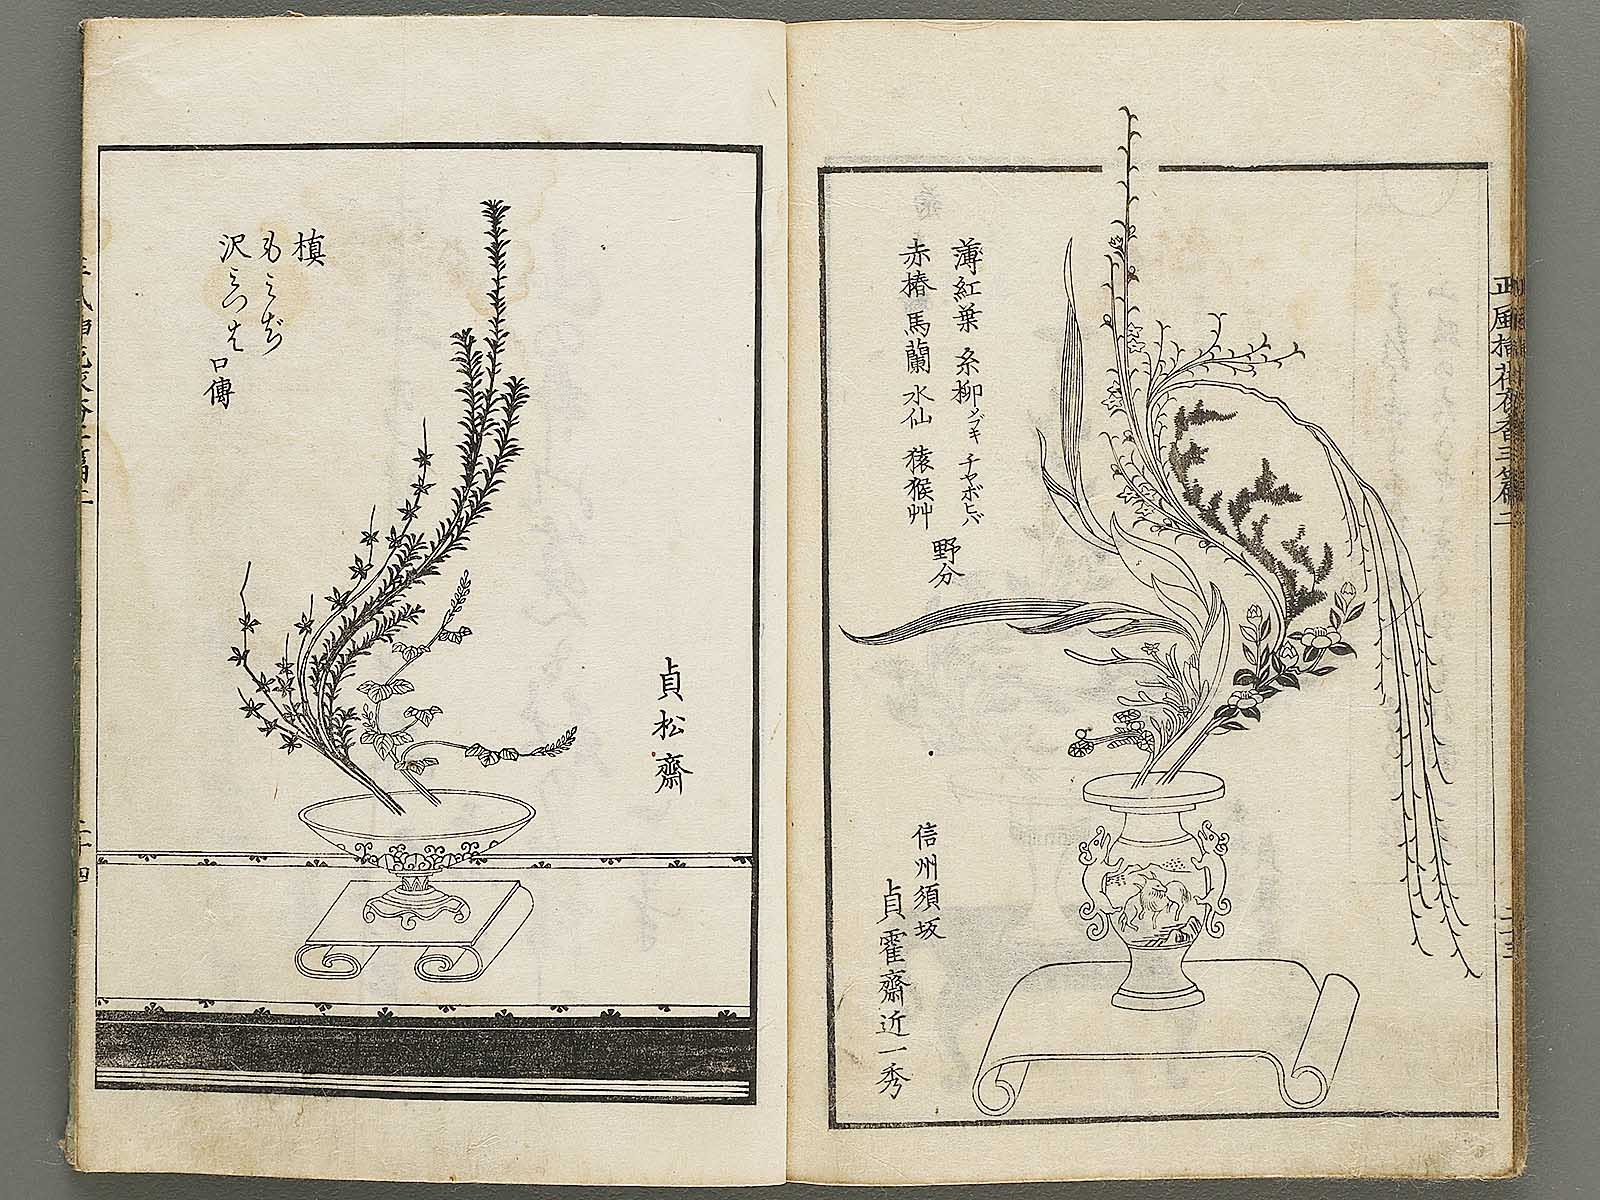 薄紅葉 糸柳 メブキ チヤボヒバ
赤椿 馬蘭 水仙 猿猴艸
野分
信州須坂
貞霍齋近一秀
二十三
槙
もみぢ
沢みつば
口傳
貞松齋
二十四